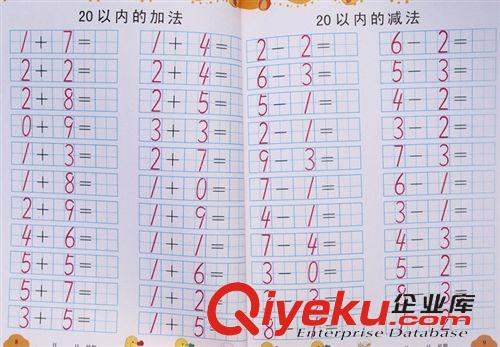 20以内的加法
1+7= 1+4=
2+2= 2+4=
2+8= 2+5=
0+9= 3+3=
1+3= 2+7=
1+8= 1+0=
2+9= 1+9=
4+6= 1+1=
5+5= 1+6=
5+7= 1+2
3+5= 1+5
8
20以内的减法
2-2= 6-2=
6-3= 5-3=
5-1= 4-2=
2-1= 3-2=
9-3= 7-3=
7-1= 6-1=
4-1= 3-1=
7-4= 4-3=
3-0= 5-2=
9
Qiyeku.com 企业库
Enterprise Database